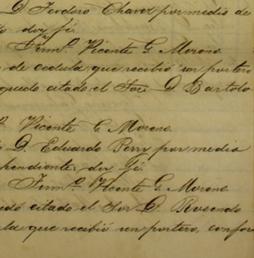 D. Teodoro Chavez por medio de
doy fé
Firm.º Vicente G. Moreno
de cedula que recibió un portero
quedó citado el Sor. D. Bartolo
Vicente G. Moreno
D. Eduardo Perry por medio
pendiente doy fé
Firm.º Vicente G. Moreno
citado el Sor. D. Rosendo
la que recibió un portero, confor